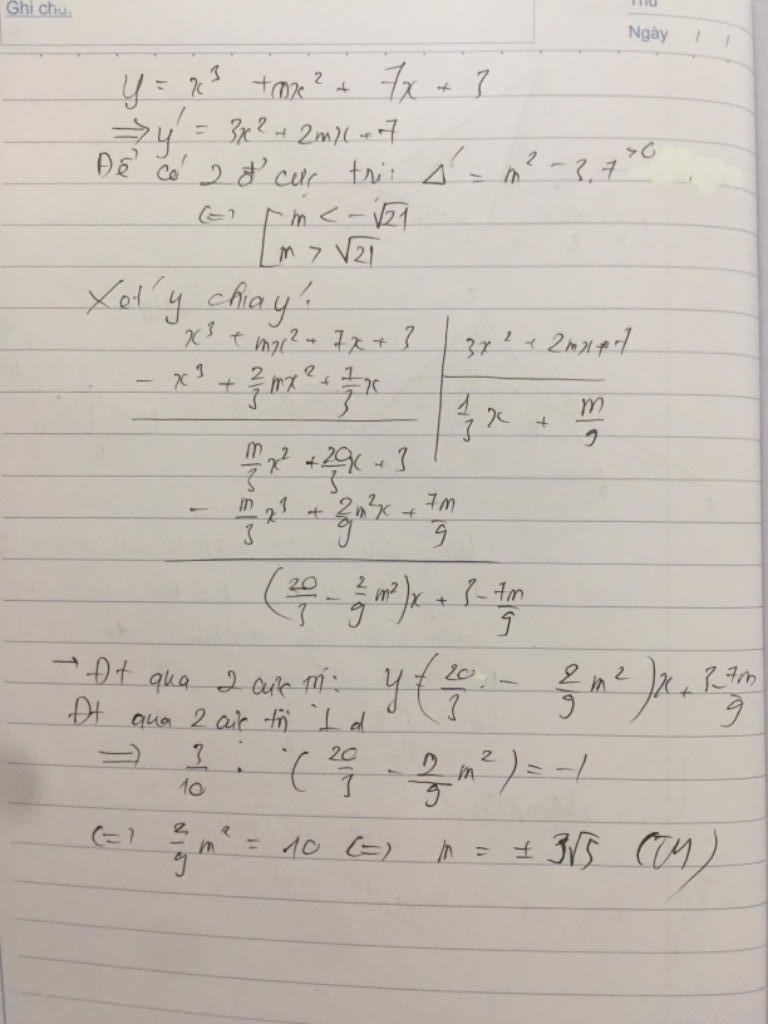 Ghi chú.
Thứ
Ngày / /
y = x³ + mx² + 7x + 3
⇒ y' = 3x² + 2mx + 7
Để có 2 đ' cực trị: Δ' = m² - 3.7 > 0
(=) [ m < -√21
m > √21
Xét y chia y':
x³ + mx² + 7x + 3 | 3x² + 2mx + 7
- x³ + 2/3 mx² + 7/3 x | 1/3 x + m/9
m/3 x² + 20/3 x + 3
- m/3 x³ + 2/9 m²x + 7m/9
(20/3 - 2/9 m²)x + 3 - 7m/9
→ Đt qua 2 cực trị: y = (20/3 - 2/9 m²)x + 3 - 7m/9
Đt qua 2 cực trị ⊥ d
⇒ 3/10 . (20/3 - 2/9 m²) = -1
(=) 2/9 m² = 10 (=) m = ± 3√5 (TM)